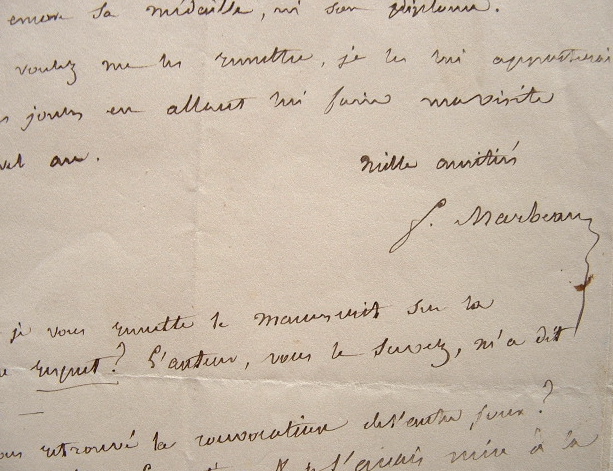 encore sa médaille, ni son diplome.
voulez me les remettre, je les lui apporterai
jours en allant lui faire ma visite
an.
Mille amitiés
f. Marbeau
je vous remette le manuscrit sur la
L'auteur, vous le savez, m'a dit
retrouvé la convocation de l'autre jour?
mise à la